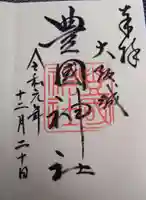 奉拝
大阪城
豊國神社
令和元年
十二月二十日